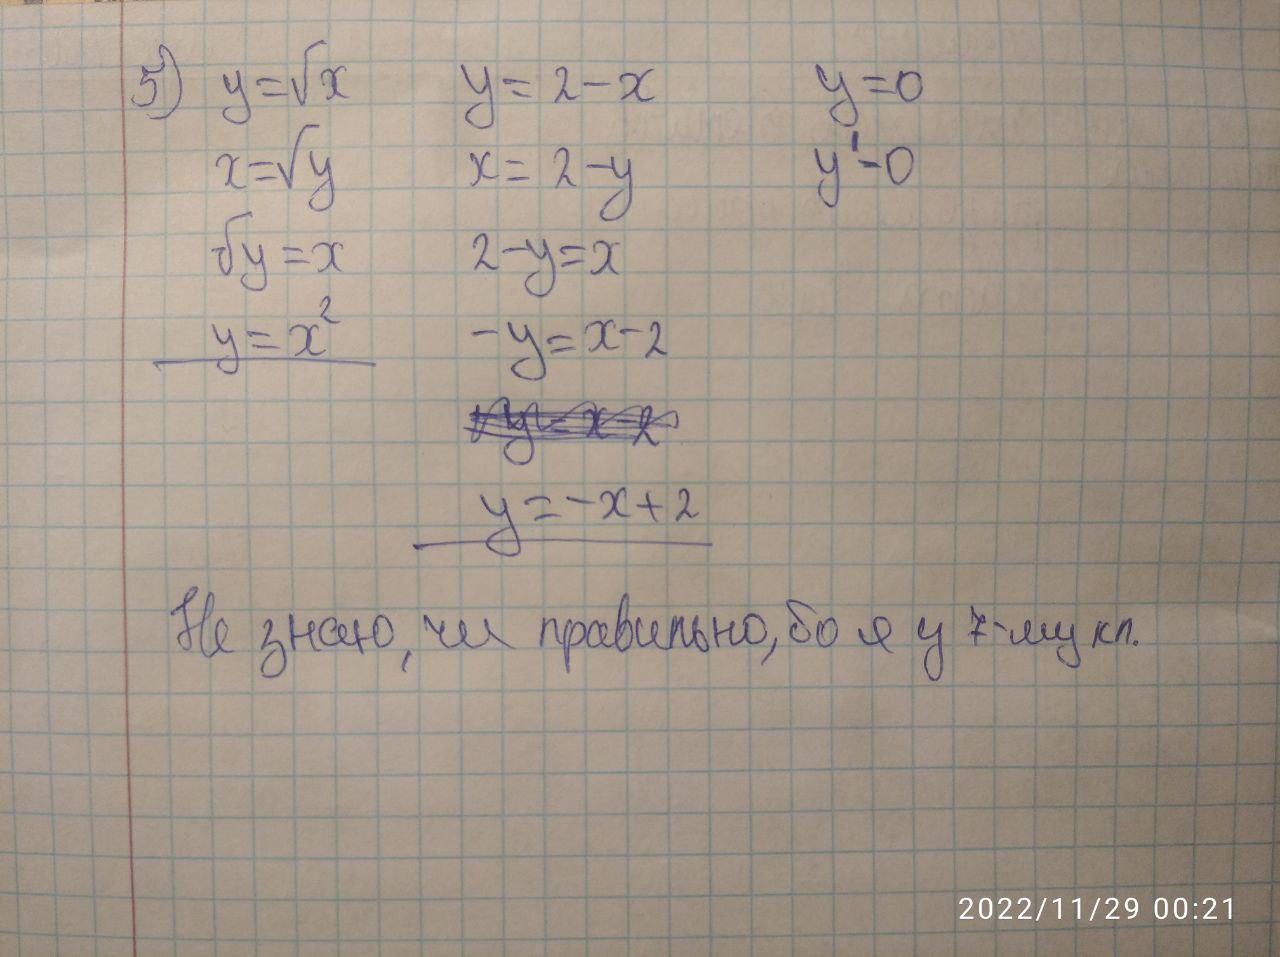 5) y=√x y=2-x y=0
x=√y x=2-y y'-0
√y=x 2-y=x
y=x² -y=x-2
y=x-2
y=-x+2
Не знаю, чи правильно, бо я у 7-му кл.
2022/11/29 00:21